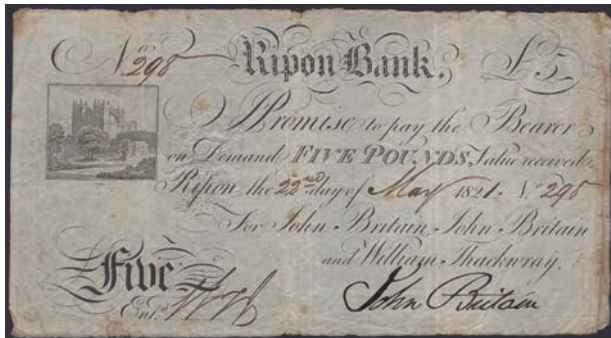 No. 298 Ripon Bank. £5
I Promise to pay the Bearer
on Demand FIVE POUNDS, Value received
Ripon the 22nd day of May 1821. No. 298
For John Britain, John Britain
and William Thackwray.
Five
Entd. John Britain